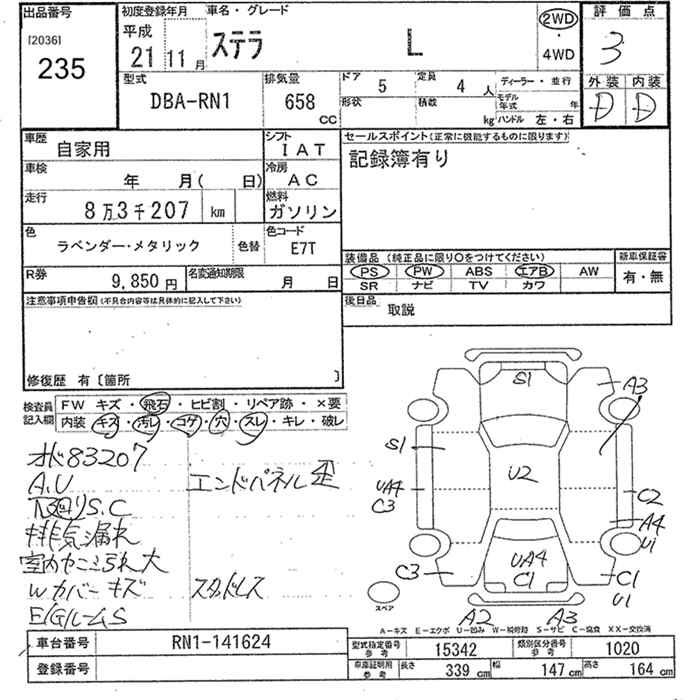 出品番号
[2036]
235
初度登録年月
平成
21 11 月
車名・グレード
ステラ L
2WD
・
4WD
評価点
3
外装 内装
D D
型式
DBA-RN1
排気量
658 CC
ドア 5
定員 4 人
形状
積数 kg
ディーラー・並行
モデル年式 年
ハンドル 左・右
車歴
自家用
シフト
IAT
車検
年 月( 日)
冷房
AC
走行
8万3千207 km
燃料
ガソリン
色
ラベンダー・メタリック
色替
色コード
E7T
R券
9,850円
名変通知期限
月 日
セールスポイント(正常に機能するものに限ります)
記録簿有り
装備品(純正品に限り○をつけてください)
PS PW ABS エアB AW
SR ナビ TV カワ
新車保証書
有・無
後日品
取説
注意事項申告欄(不具合内容等は具体的に記入して下さい)
修復歴 有〔箇所 〕
検査員記入欄
FW キズ・飛石・ヒビ割・リペア跡・×要
内装 キズ・汚レ・コゲ・穴・スレ・キレ・破レ
83207
A.U
下回りS.C
排気漏れ
室内ヤニ汚れ大
Wカバーキズ
E/GルームS
エンドパネル歪
スタッドレス
S1
A3
S1
U2
UA4
C3
C2
A4
U1
C3
UA4
C1
C1
U1
スペア
A2 A3
A−キズ E−エクボ U−凹み W−補修跡 S−サビ C−腐食 XX−交換済
車台番号
RN1-141624
登録番号
型式指定番号
参考
15342
類別区分番号
参考
1020
車庫証明用
参考
長さ 339 cm
幅 147 cm
高さ 164 cm